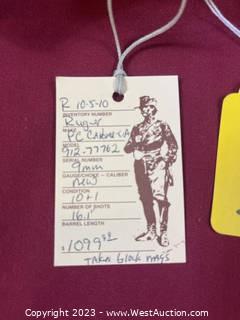 R 10-5-10
INVENTORY NUMBER
Ruger
MAKE
PC Carbine
MODEL
912-77762
SERIAL NUMBER
9mm
GAUGE/CHOKE – CALIBER
New
CONDITION
10+1
NUMBER OF SHOTS
16.1"
BARREL LENGTH
$1099
Takes Glock mags
Copyright 2023 - WestAuction.com